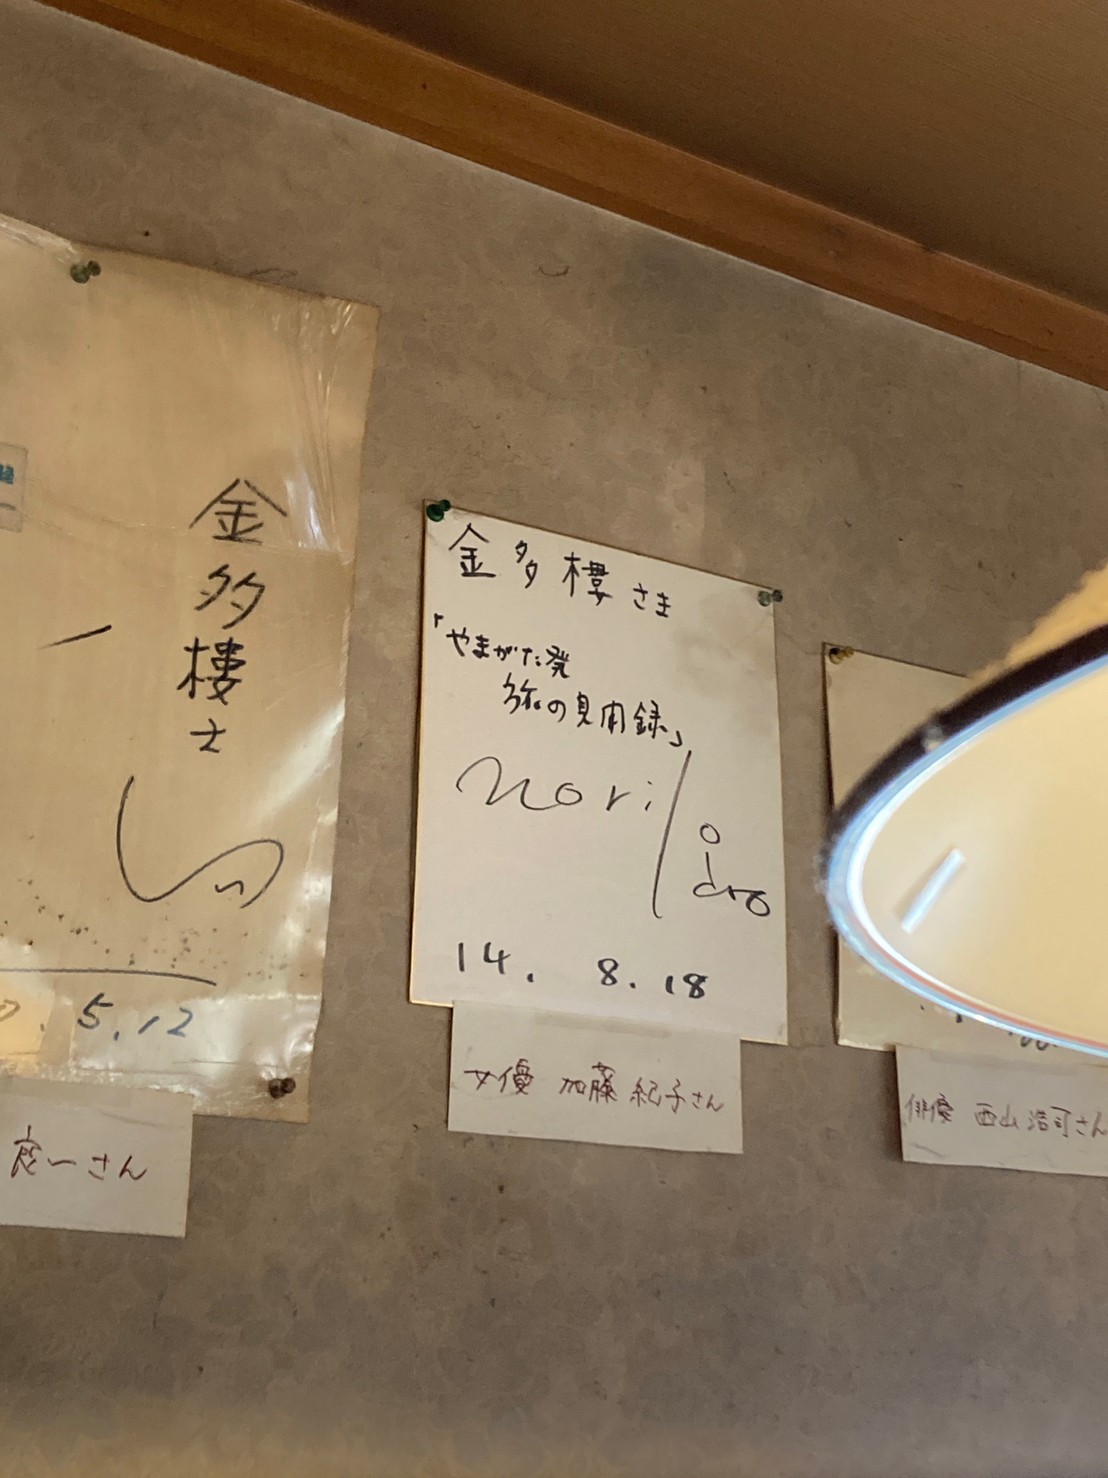 金多樓士
5.12
良一さん
金多樓さま
「やまがた発
旅の見聞録」
nori
14. 8.18
女優 加藤紀子さん
俳優 西山浩司さん